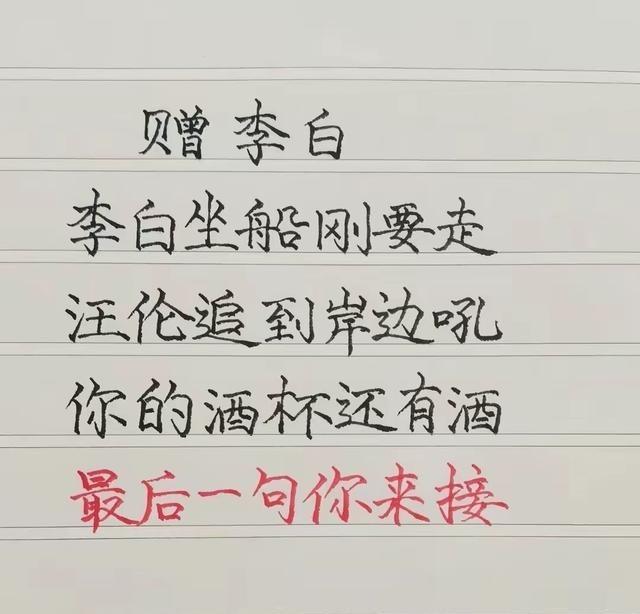 赠李白
李白坐船刚要走
汪伦追到岸边吼
你的酒杯还有酒
最后一句你来接